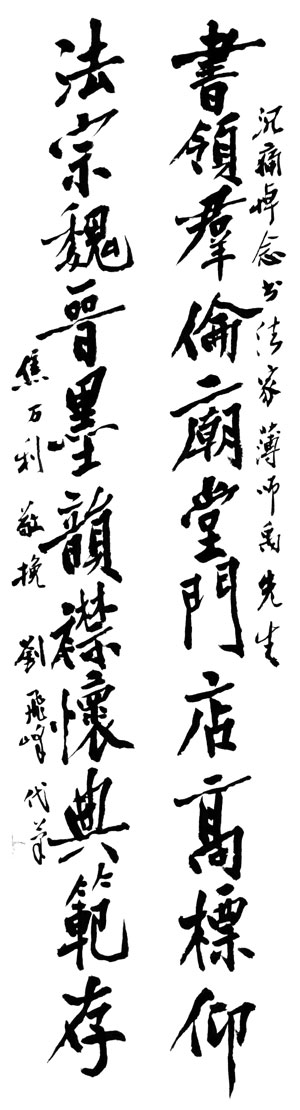 沉痛悼念书法家薄师禹先生
書領羣倫廟堂門店高標仰
法宗魏晉墨韻襟懷典範存
焦万利 敬挽 劉飛峰代筆